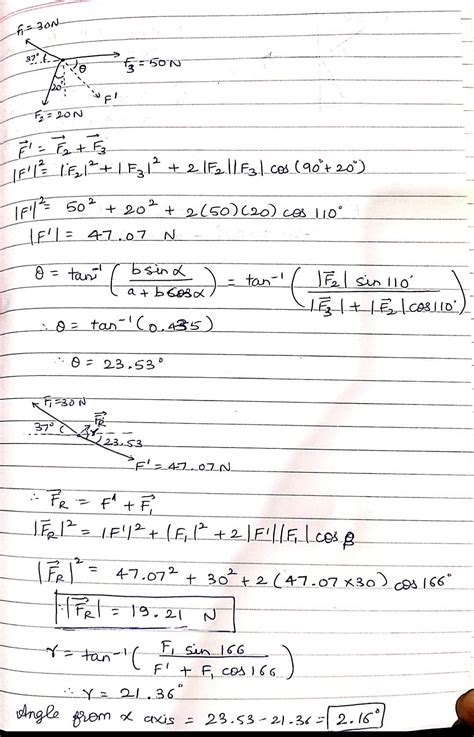 F₁=30N
37°
θ
F₃=50N
20°
F'
F₂=20N
F⃗' = F⃗₂ + F⃗₃
|F'|² = |F₂|² + |F₃|² + 2|F₂||F₃| cos(90°+20°)
|F'|² = 50² + 20² + 2(50)(20) cos 110°
|F'| = 47.07 N
θ = tan⁻¹ (b sinα / a + b cosα) = tan⁻¹ (|F⃗₂| sin 110° / |F⃗₃| + |F⃗₂| cos110°)
∴ θ = tan⁻¹ (0.435)
∴ θ = 23.53°
F₁=30N
F⃗R
37°
γ
23.53
F' = 47.07N
∴ F⃗R = F' + F⃗₁
|F⃗R|² = |F'|² + |F₁|² + 2|F'||F₁| cos β
|F⃗R|² = 47.07² + 30² + 2(47.07×30) cos 166°
∴ |F⃗R| = 19.21 N
γ = tan⁻¹ (F₁ sin 166 / F' + F₁ cos 166)
∴ γ = 21.36°
Angle from x axis = 23.53 - 21.36 = 2.16°